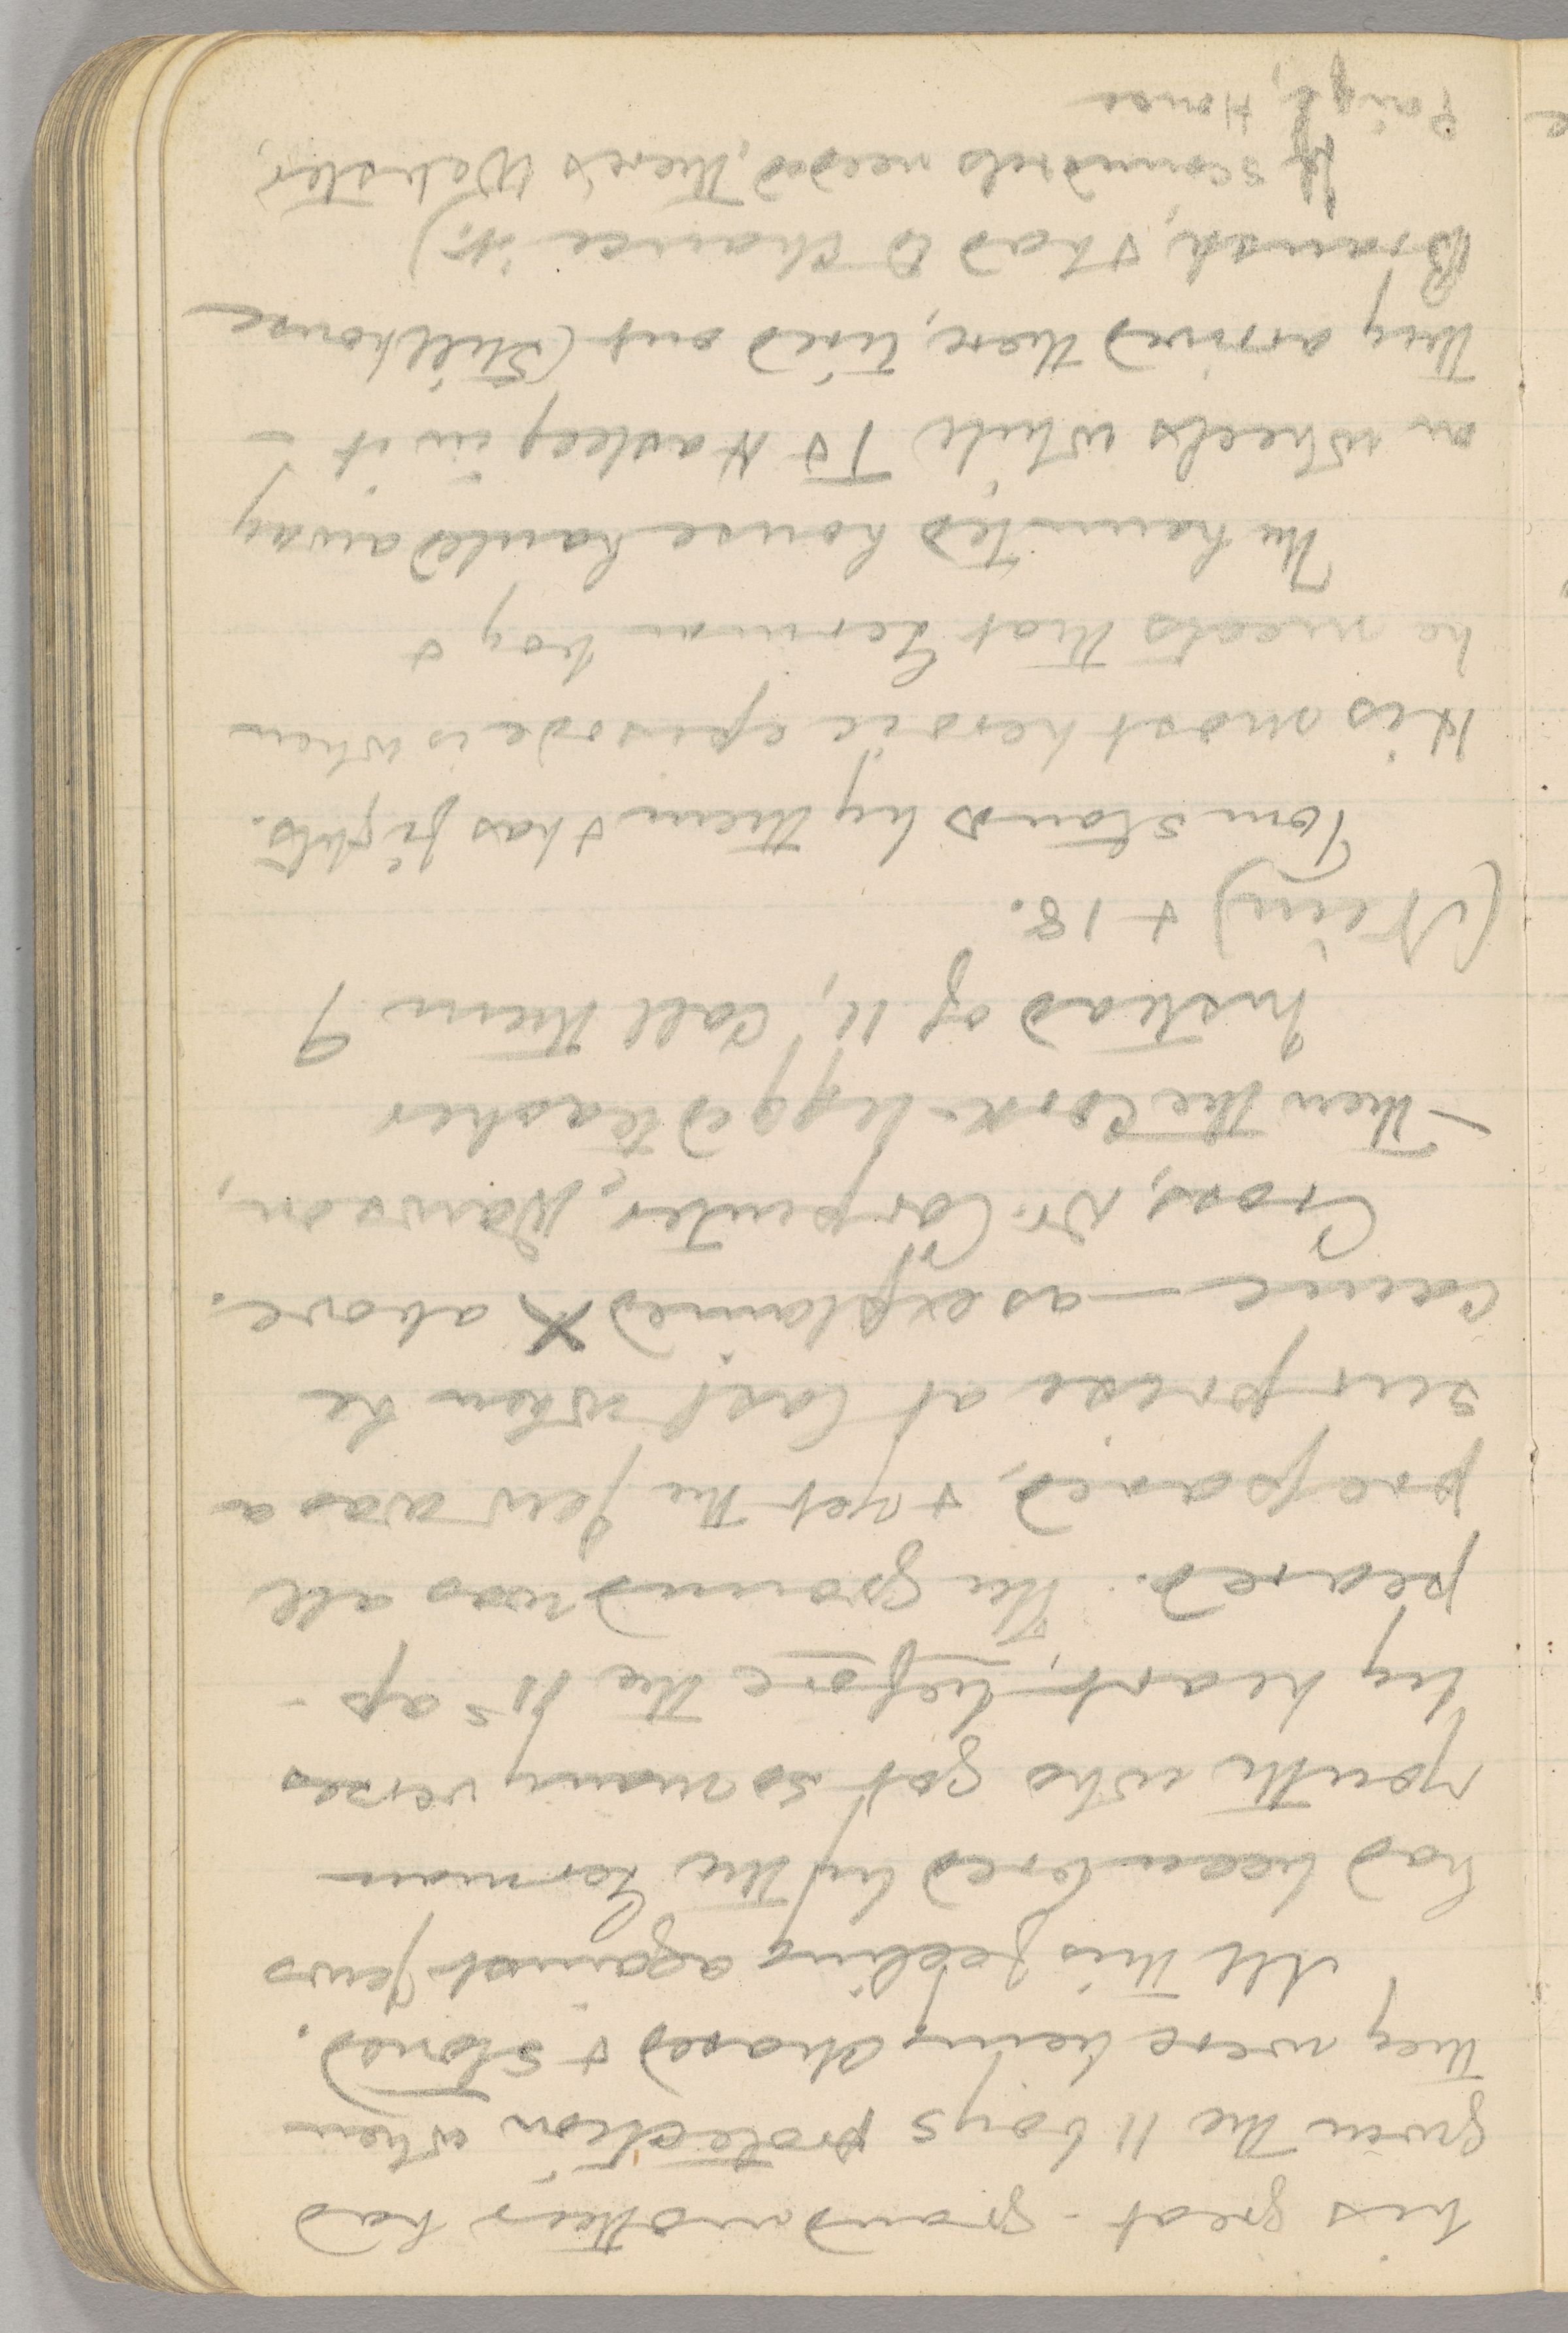 his great-grandmother had
given the 11 boys protection when
they were being chased & stoned.
All this feeling against Jews
had been bred by the German
youth who got so many verses
by heart, before the 11s ap-
peared. The ground was all
prepared, & yet the Jew was a
surprise at last when he
came — as explained X above.
Cross, Dr. Carpenter, Dawson,
— then the Cork-legged teacher
Instead of 11, call them 9
(Nein) & 18.
Tom stands by them & has fights.
His most heroic episode is when
he meets that German boy &
The haunted house hauled away
on wheels while T & H asleep in it —
They arrived there, tired out (Stillhouse
Branch, & had to chance it.)
If scoundrels needed, there's Webster,
Paige, House